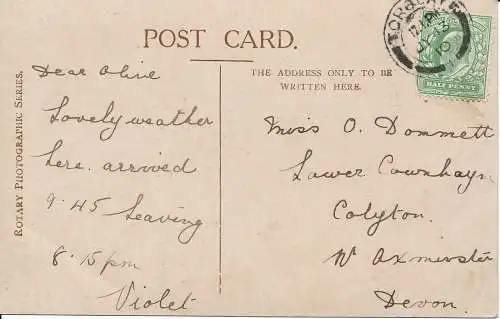 POST CARD.
ROTARY PHOTOGRAPHIC SERIES.
Dear Olive
Lovely weather
here. arrived
9.45 leaving
8.15pm
Violet
THE ADDRESS ONLY TO BE
WRITTEN HERE.
Miss O. Dommett
Lower Cownhayn
Colyton.
Nr Axminster
Devon.
TORQUAY
HALF PENNY